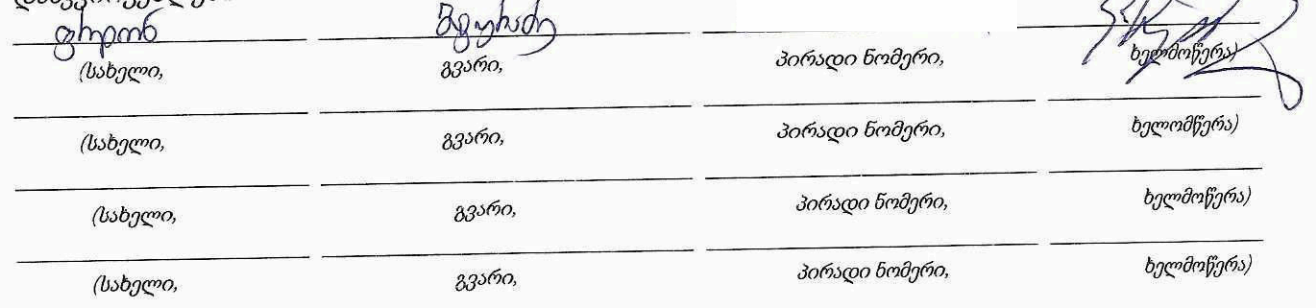 ფრიდონ მგურაძე
(სახელი, გვარი, პირადი ნომერი, ხელმოწერა)
(სახელი, გვარი, პირადი ნომერი, ხელომწერა)
(სახელი, გვარი, პირადი ნომერი, ხელმოწერა)
(სახელი, გვარი, პირადი ნომერი, ხელმოწერა)